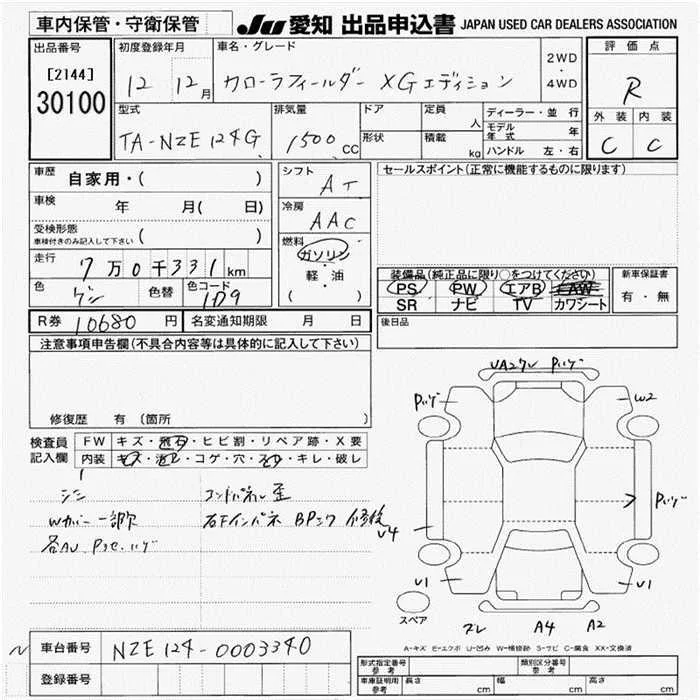 車内保管・守衛保管
JU 愛知 出品申込書 JAPAN USED CAR DEALERS ASSOCIATION
出品番号
[2144]
30100
初度登録年月
12 12月
車名・グレード
カローラフィールダー XGエディション
2WD
・
4WD
評価点
R
外装 内装
C C
型式
TA-NZE124G
排気量
1500cc
ドア
形状
定員 人
積載 kg
ディーラー・並行
モデル年式 年
ハンドル 左・右
車歴 自家用・( )
車検 年 月( 日)
受検形態
車検付きのみ記入して下さい ( )
走行 7万0千331km
色 色替 色コード
1D9
シフト
AT
冷房
AAC
燃料
ガソリン
・
軽・油
( )
セールスポイント(正常に機能するものに限ります)
装備品(純正品に限り○をつけてください)
PS PW エアB AW
SR ナビ TV カワシート
新車保証書
有・無
R券 10680円
名変通知期限 月 日
後日品
注意事項申告欄(不具合内容等は具体的に記入して下さい)
修復歴 有 (箇所 )
検査員
記入欄
FW キズ・飛石・ヒビ割・リペア跡・X要
内装 キズ・汚レ・コゲ・穴・スレ・キレ・破レ
コンドパネル歪
Wカバー一部欠
右下インパネ BPニク 修復
各AU Pセ.ハゲ
UA2ワレ Pハゲ
Pハゲ
W2
Pハゲ
U4
U1
U1
スペア
スレ A4 A2
A-キズ E-エクボ U-凹み W-補修跡 S-サビ C-腐食 XX-交換済
車台番号 NZE124-0003340
登録番号
形式指定番号
参考
類別区分番号
参考
車庫証明用
参考
長さ cm 幅 cm 高さ cm